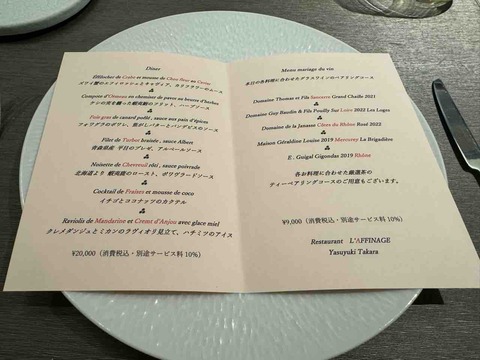 Dîner
Effilocher de Crabe et mousse de Chou-fleur au Caviar
ズワイ蟹のエフィロッシェとキャヴィア、カリフラワーのムース
Compote d'Ormeau en chemise de pavot au beurre d'herbes
ケシの実を纏った蝦夷鮑のフリット、ハーブソース
Foie gras de canard poêlé , sauce aux pain d'épices
フォワグラのポワレ、焦がしバターとパンデピスのソース
Filet de Turbot braisée , sauce Albert
青森県産 平目のブレゼ、アルベールソース
Noisette de Chevreuil rôti , sauce poivrade
北海道より 蝦夷鹿のロースト、ポワヴラードソース
Cocktail de Fraises et mousse de coco
イチゴとココナッツのカクテル
Raviolis de Mandarine et Cremt d'Anjou avec glace miel
クレメダンジュとミカンのラヴィオリ見立て、ハチミツのアイス
¥20,000（消費税込・別途サービス料 10%）
Menu mariage du vin
本日の各料理に合わせたグラスワインのペアリングコース
Domaine Thomas et Fils Sancerre Grand Chaille 2021
Domaine Guy Baudin & Fils Pouilly Sur Loire 2022 Les Loges
Domaine de la Janasse Côtes du Rhône Rosé 2022
Maison Géraldine Louise 2019 Mercurey La Brigadière
E . Guigal Gigondas 2019 Rhône
各お料理に合わせた厳選茶の
ティーペアリングコースのご用意もございます。
¥9,000（消費税込・別途サービス料 10%）
Restaurant L'AFFINAGE
Yasuyuki Takara